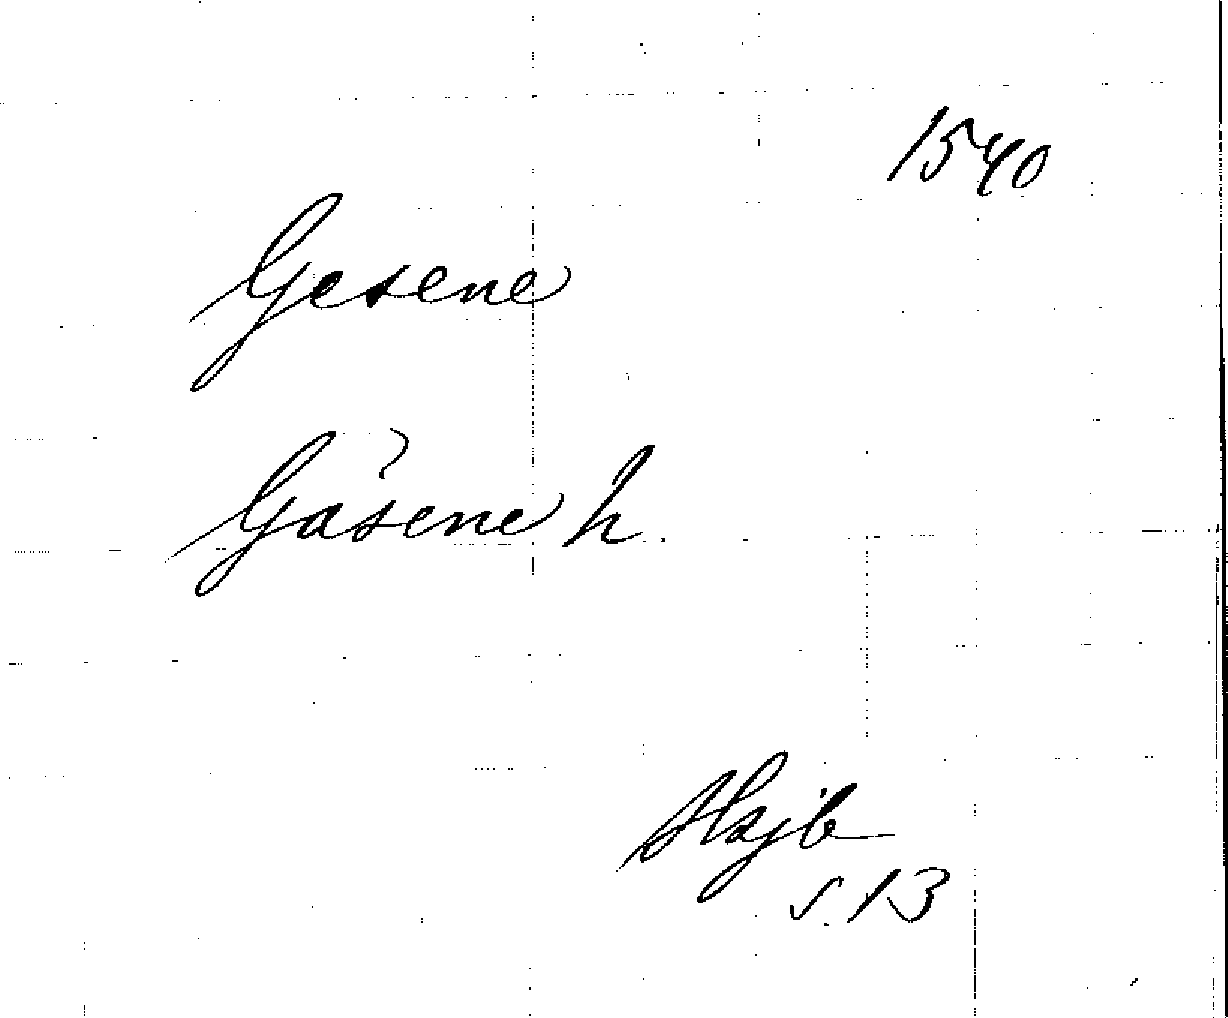 1540
Gesene
Gäsene h.
Hsjb
s. 13